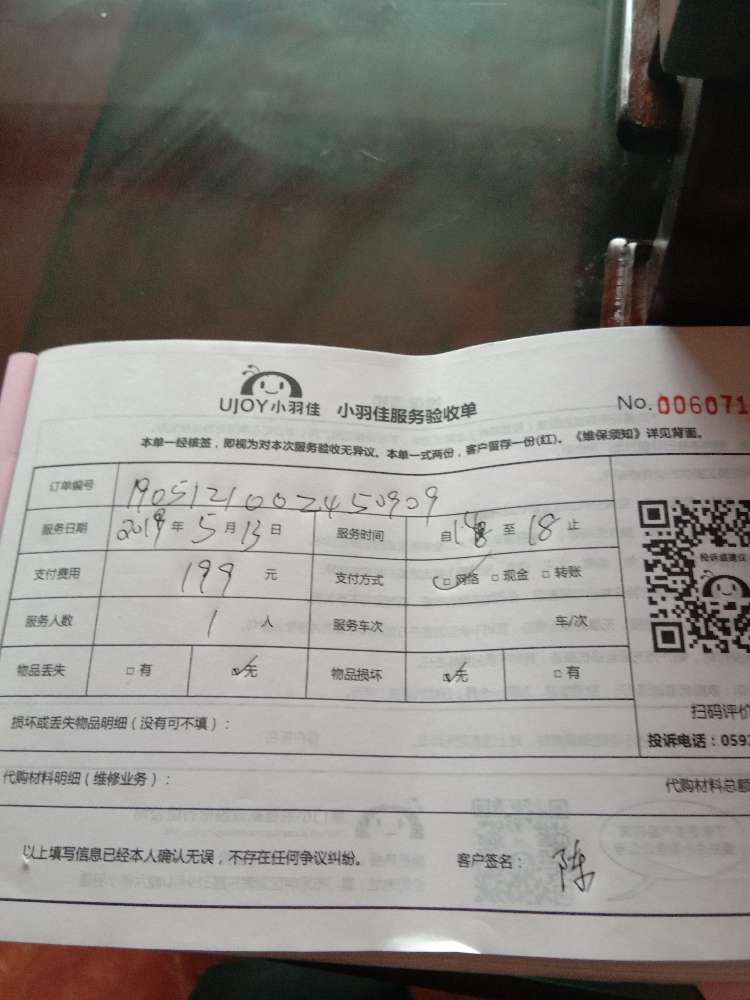 UJOY小羽佳 小羽佳服务验收单 No.006071
本单一经核签，即视为对本次服务验收无异议。本单一式两份，客户留存一份(红)。《维保须知》详见背面。
订单编号 1905121002450909
服务日期 2019年5月13日 服务时间 自14至18止
支付费用 199元 支付方式 □网络 □现金 □转账
投诉或建议
服务人数 1人 服务车次 车/次
物品丢失 □有 ☑无 物品损坏 ☑无 □有
扫码评价
损坏或丢失物品明细（没有可不填）：
投诉电话：0592
代购材料明细（维修业务）： 代购材料总额
以上填写信息已经本人确认无误，不存在任何争议纠纷。 客户签名：陈